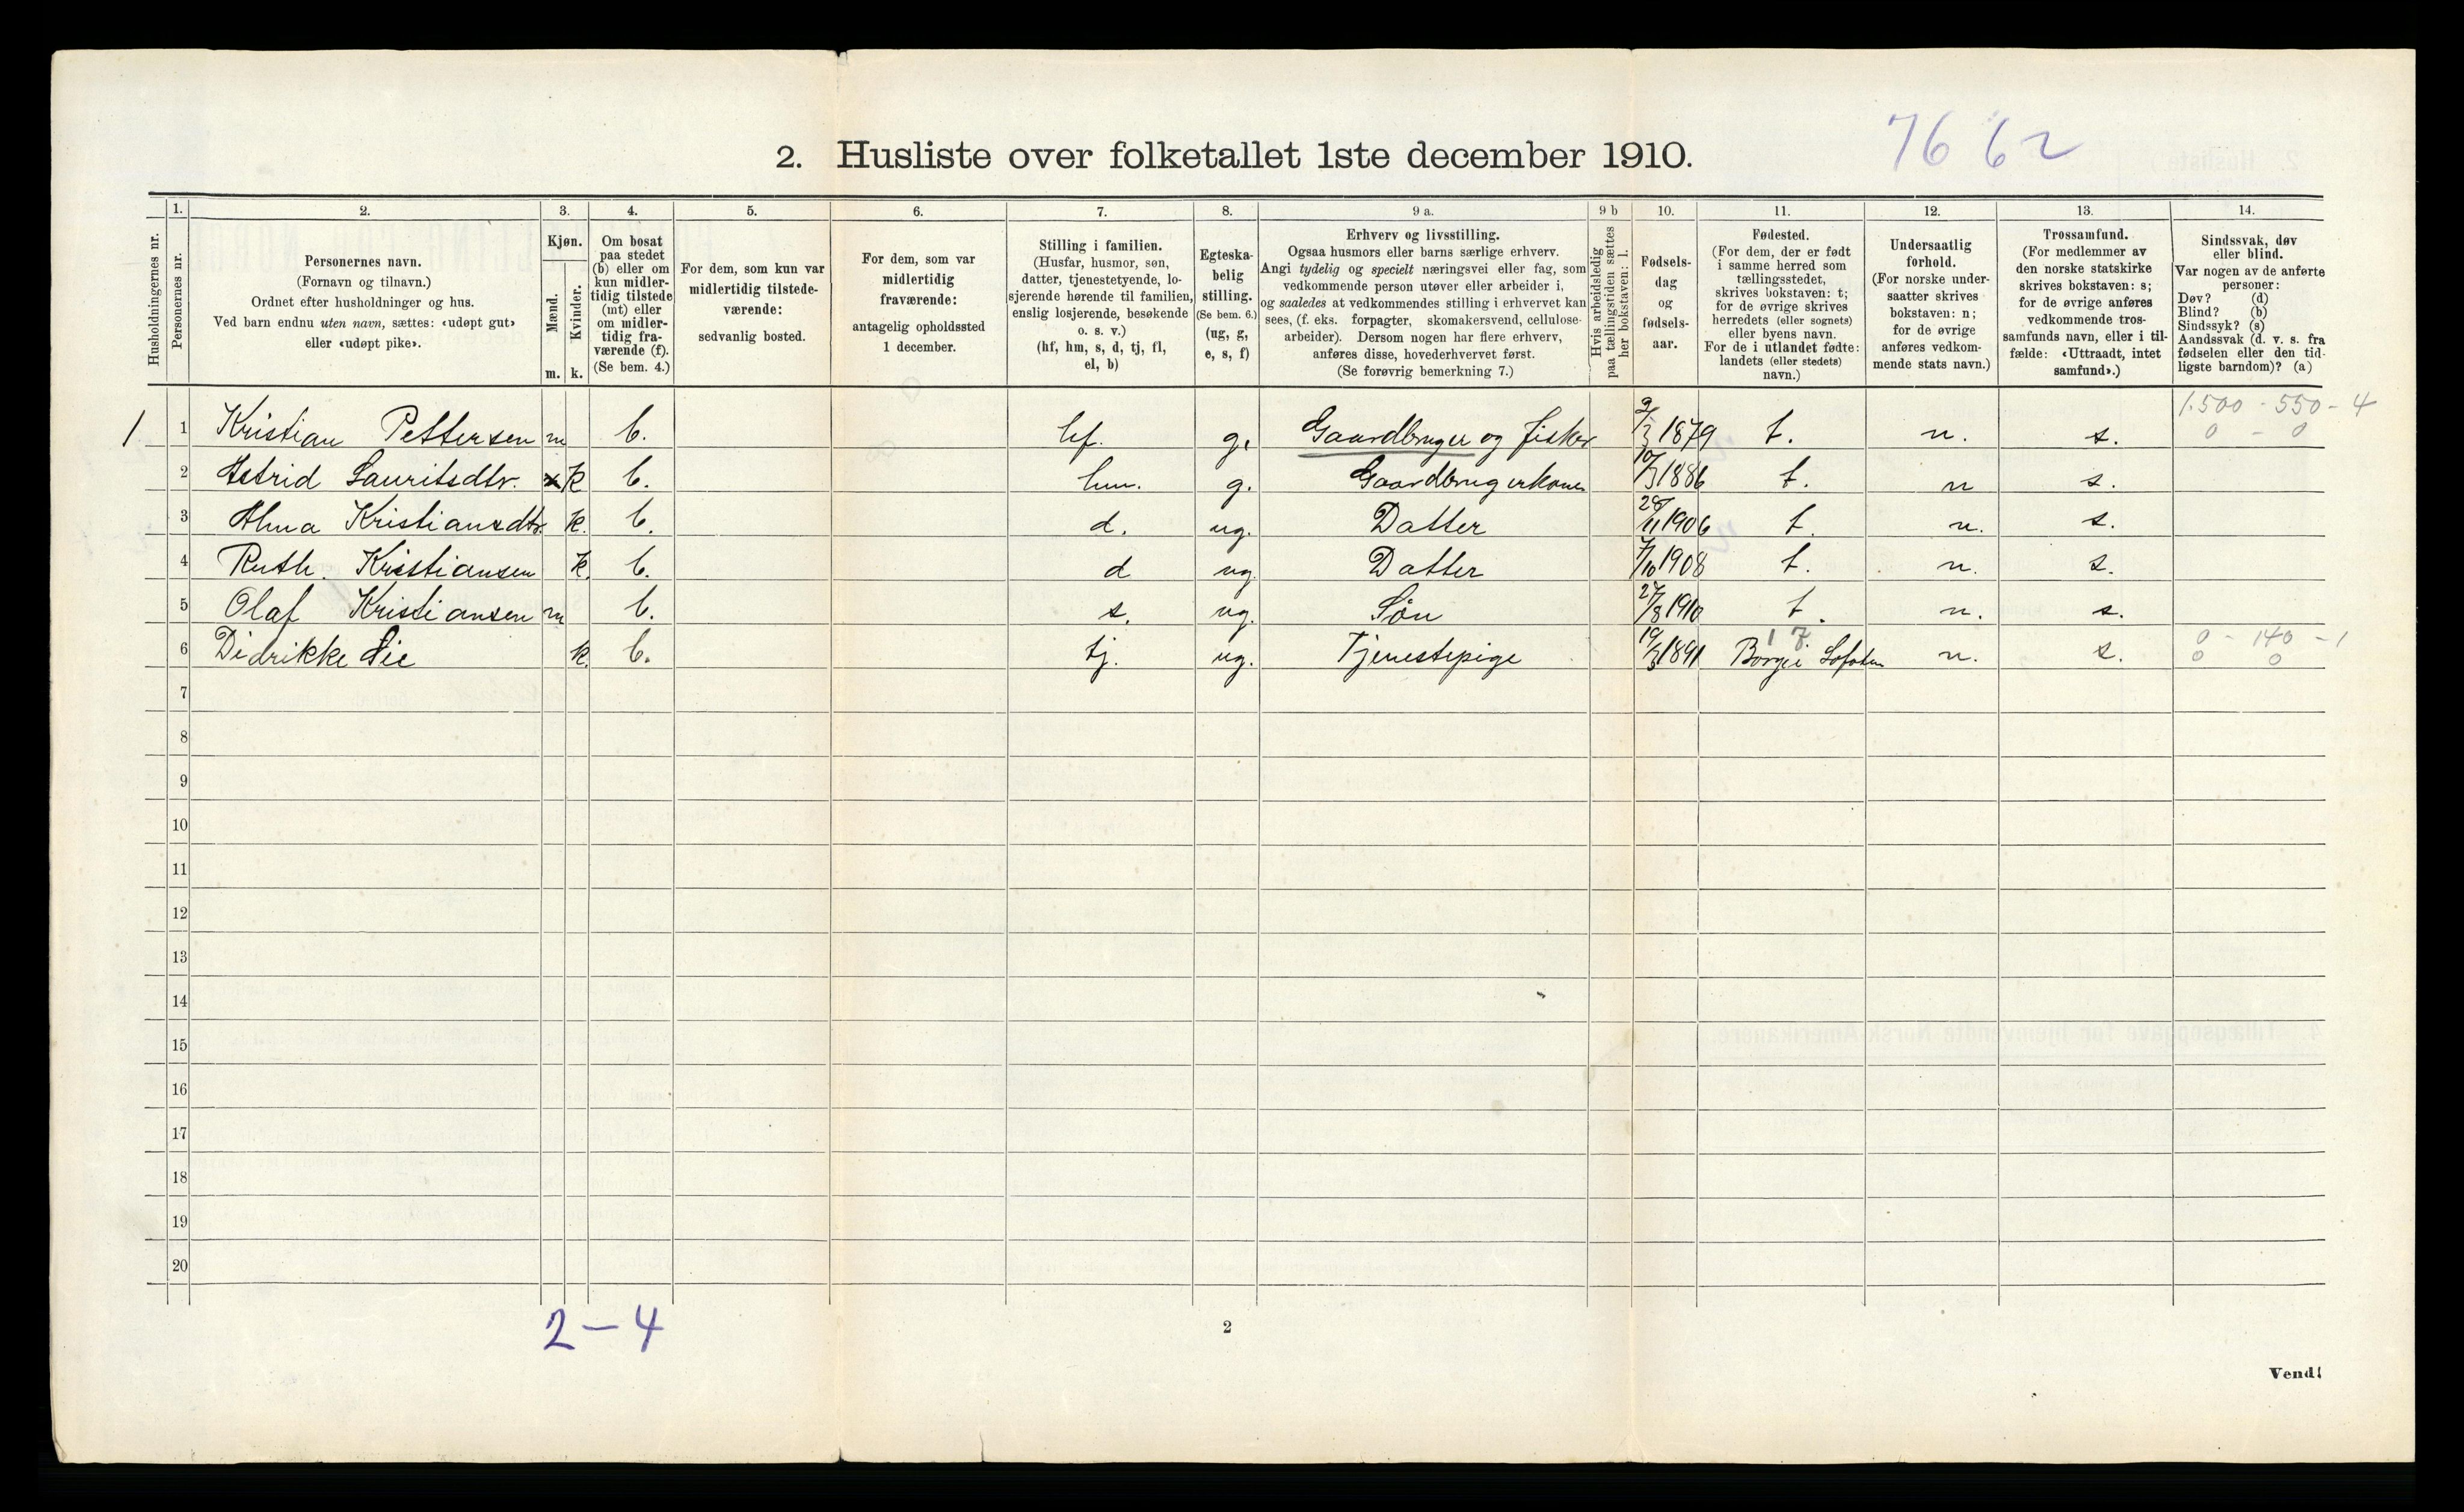 76 62
2. Husliste over folketallet 1ste december 1910.
Husholdningernes nr.
1. Personernes nr.
2. Personernes navn.
(Fornavn og tilnavn.)
Ordnet efter husholdninger og hus.
Ved barn endnu uten navn, sættes: «udøpt gut»
eller «udøpt pike».
3. Kjøn.
Mænd. Kvinder.
m. k.
4. Om bosat
paa stedet
(b) eller om
kun midler-
tidig tilstede
(mt) eller
om midler-
tidig fra-
værende (f).
(Se bem. 4.)
5. For dem, som kun var
midlertidig tilstede-
værende:
sedvanlig bosted.
6. For dem, som var
midlertidig
fraværende:
antagelig opholdssted
1 december.
7. Stilling i familien.
(Husfar, husmor, søn,
datter, tjenestetyende, lo-
sjerende hørende til familien,
enslig losjerende, besøkende
o. s. v.)
(hf, hm, s, d, tj, fl,
el, b)
8. Egteska-
belig
stilling.
(Se bem. 6.)
(ug, g,
e, s, f)
9 a. Erhverv og livsstilling.
Ogsaa husmors eller barns særlige erhverv.
Angi tydelig og specielt næringsvei eller fag, som
vedkommende person utøver eller arbeider i,
og saaledes at vedkommendes stilling i erhvervet kan
sees, (f. eks. forpagter, skomakersvend, cellulose-
arbeider). Dersom nogen har flere erhverv,
anføres disse, hovederhvervet først.
(Se forøvrig bemerkning 7.)
9 b Hvis arbeidsledig
paa tællingstiden sættes
her bokstaven: l.
10. Fødsels-
dag
og
fødsels-
aar.
11. Fødested.
(For dem, der er født
i samme herred som
tællingsstedet,
skrives bokstaven: t;
for de øvrige skrives
herredets (eller sognets)
eller byens navn.
For de i utlandet fødte:
landets (eller stedets)
navn.)
12. Undersaatlig
forhold.
(For norske under-
saatter skrives
bokstaven: n;
for de øvrige
anføres vedkom-
mende stats navn.)
13. Trossamfund.
(For medlemmer av
den norske statskirke
skrives bokstaven: s;
for de øvrige anføres
vedkommende tros-
samfunds navn, eller i til-
fælde: «Uttraadt, intet
samfund».)
14. Sindssvak, døv
eller blind.
Var nogen av de anførte
personer:
Døv? (d)
Blind? (b)
Sindssyk? (s)
Aandssvak (d. v. s. fra
fødselen eller den tid-
ligste barndom)? (a)
1.500 - 550 - 4
1 1 Kristian Pettersen m b. hf. g. Gaardbruger og fisker 9/3 1879 t. n. s. 0 - 0
2 Astrid Lauritsdtr. k b. hm. g. Gaardbrugerkone 10/3 1886 t. n s.
3 Alma Kristiansdtr. k. b. d. ug. Datter 28/11 1906 t. n. s.
4 Ruth. Kristiansen k. b. d ug. Datter 7/10 1908 t. n. s.
5 Olaf Kristiansen m b. s. ug. Søn 27/8 1910 t. n. s.
17 0 - 140 - 1
6 Didrikke Lie k. b. tj. ug. Tjenestepige 19/3 1891 Borge i Lofoten n. s. 0 0
7
8
9
10
11
12
13
14
15
16
17
18
19
20
2 - 4
2
Vend!